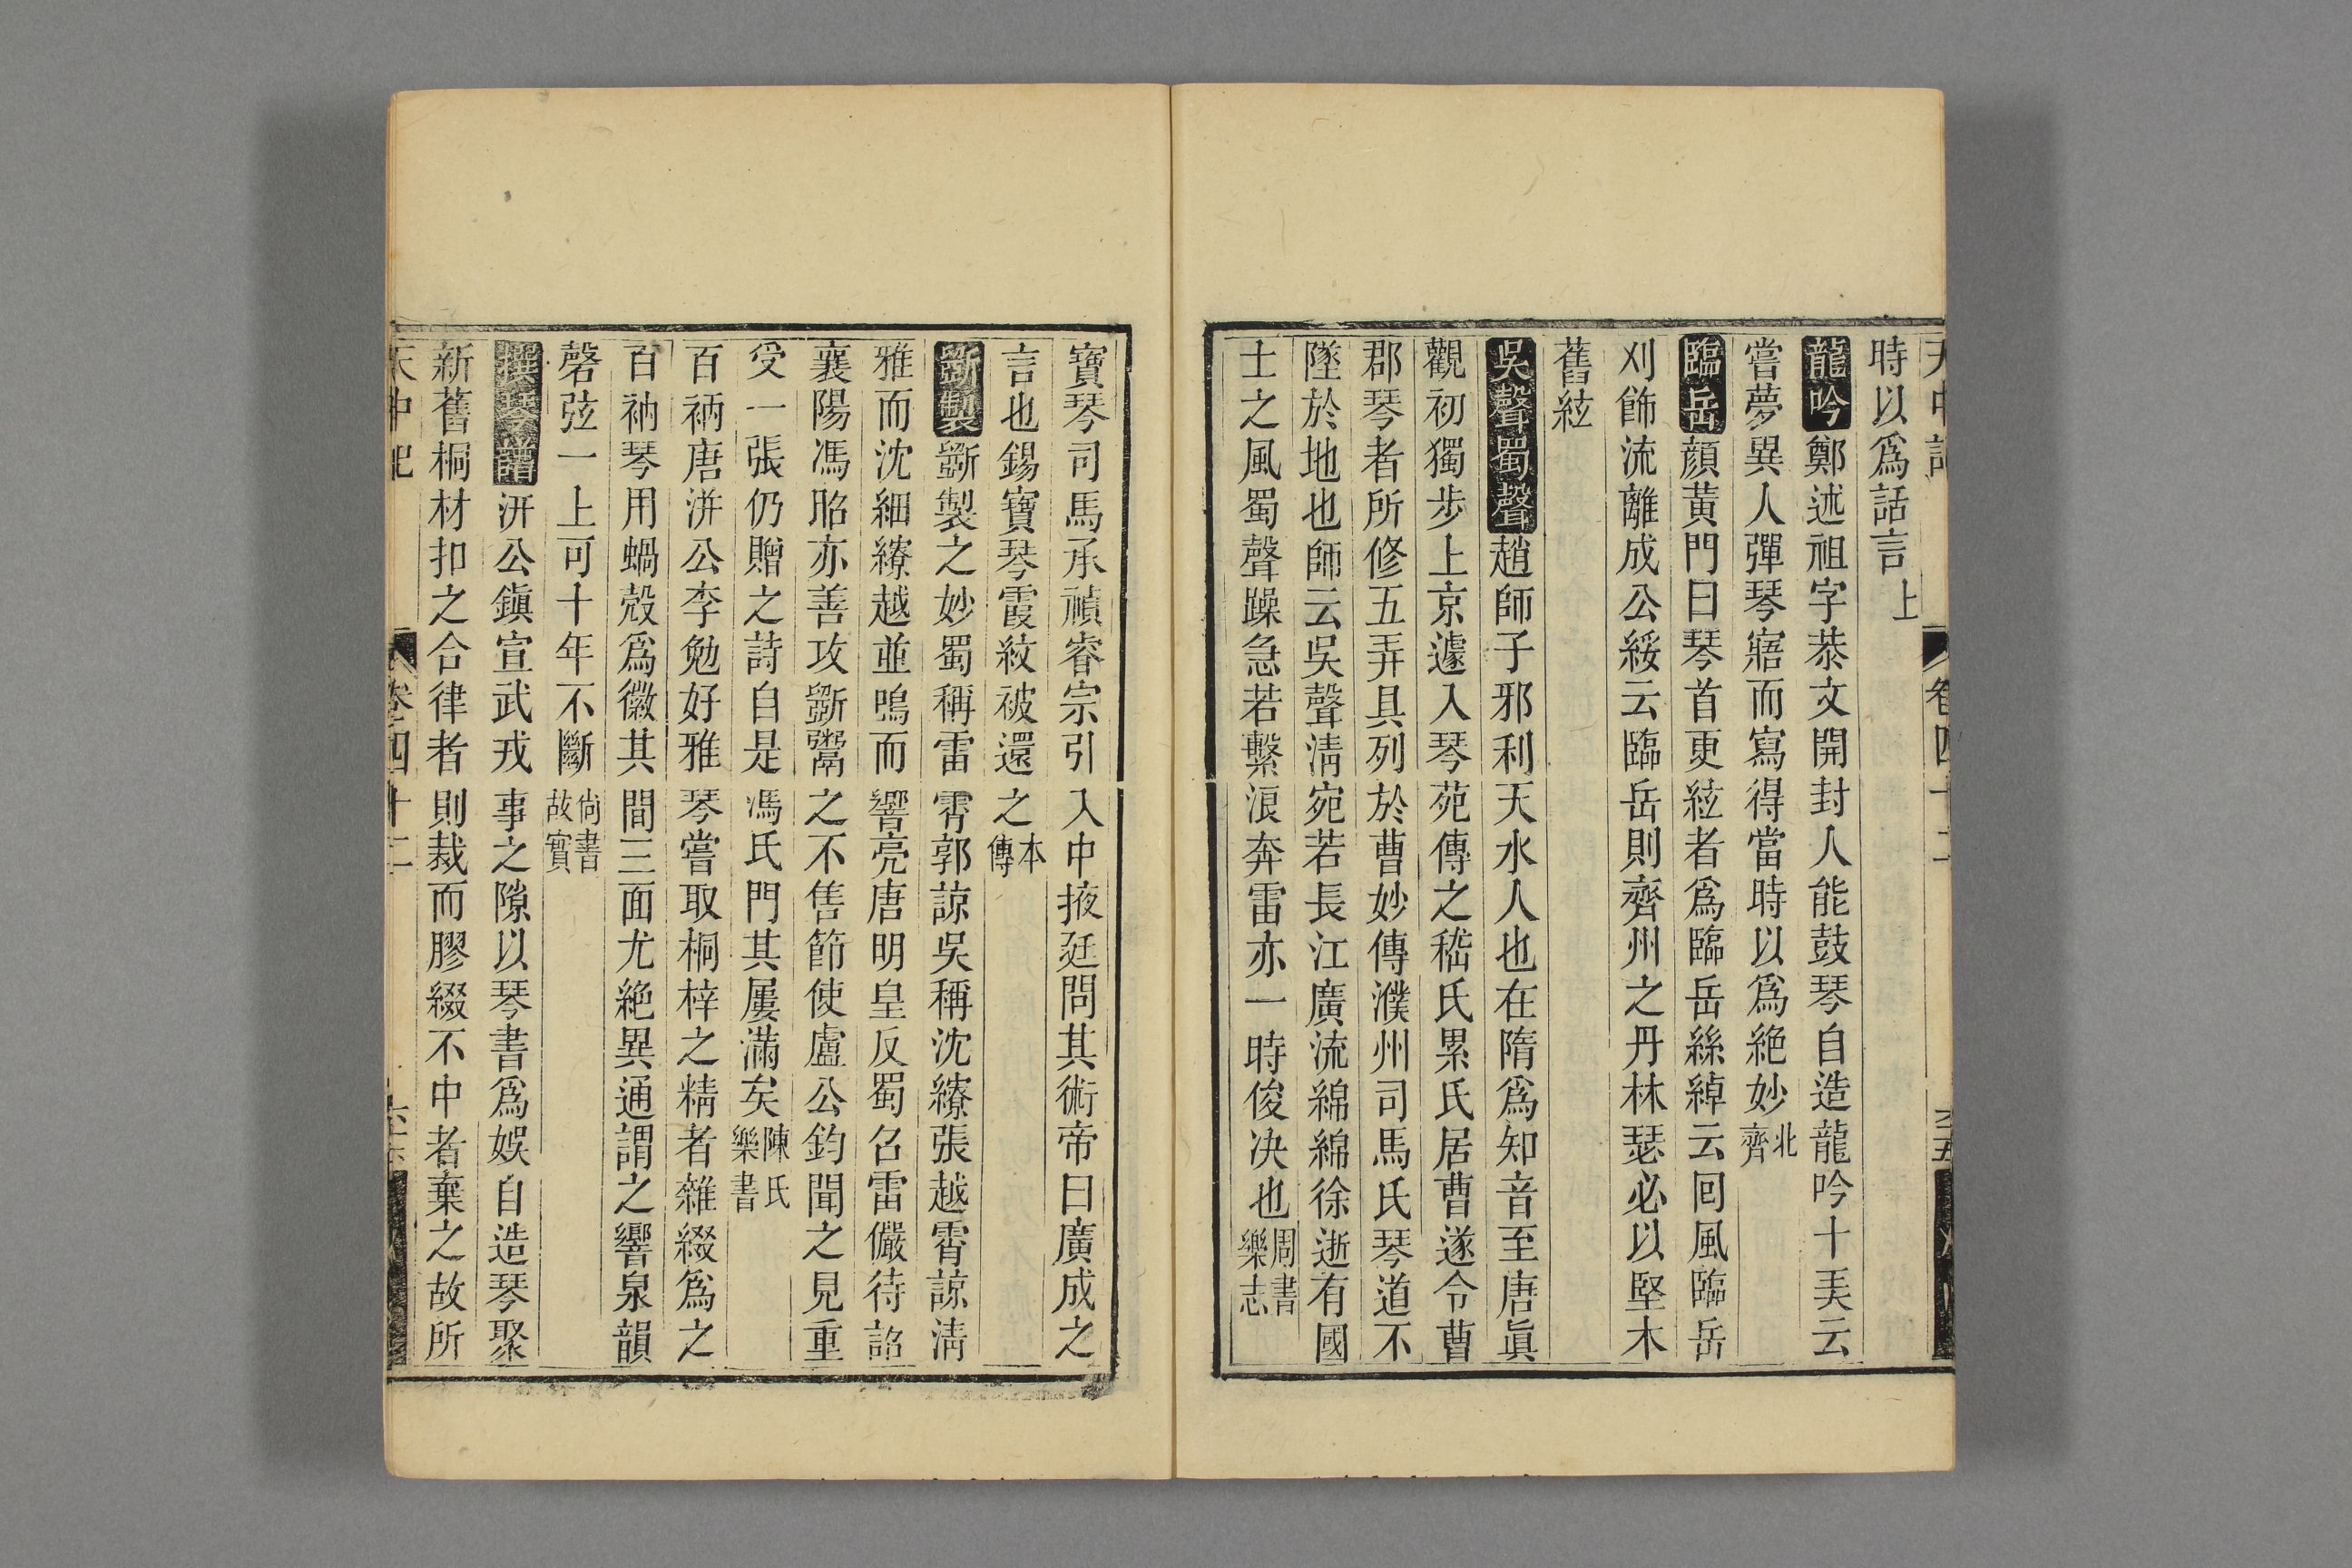 時以爲話言上
龍吟鄭述祖字恭文開封人能鼓琴自造龍吟十弄云
嘗夢異人彈琴寤而寫得當時以爲絶妙北齊
臨岳顔黃門曰琴首更絃者爲臨岳絲綽云回風臨岳
刈飾流離成公綏云臨岳則齊州之丹林瑟必以堅木
舊絃
吳聲蜀聲趙師子邪利天水人也在隋爲知音至唐眞
觀初獨步上京遽入琴苑傳之嵇氏累氏居曹遂令曹
郡琴者所修五弄具列於曹妙傳濮州司馬氏琴道不
墜於地也師云吳聲淸宛若長江廣流綿綿徐逝有國
士之風蜀聲躁急若繫浪奔雷亦一時俊决也周書樂志
寶琴司馬承禎睿宗引入中掖廷問其術帝曰廣成之
言也錫寶琴霞紋被還之本傳
斵製斵製之妙蜀稱雷霄郭諒吳稱沈繚張越霄諒淸
雅而沈細繚越並鳴而響亮唐明皇反蜀召雷儼待詔
襄陽馮昭亦善攻斵鬻之不售節使盧公鈞聞之見重
受一張仍贈之詩自是馮氏門其屢滿矣陳氏樂書
百衲唐汧公李勉好雅琴嘗取桐梓之精者雜綴爲之
百衲琴用蝸殼爲徽其間三面尤絶異通謂之響泉韻
磬弦一上可十年不斷尙書故實
撰琴譜汧公鎭宣武戎事之隙以琴書爲娛自造琴聚
新舊桐材扣之合律者則裁而膠綴不中者棄之故所
天中記 卷四十二